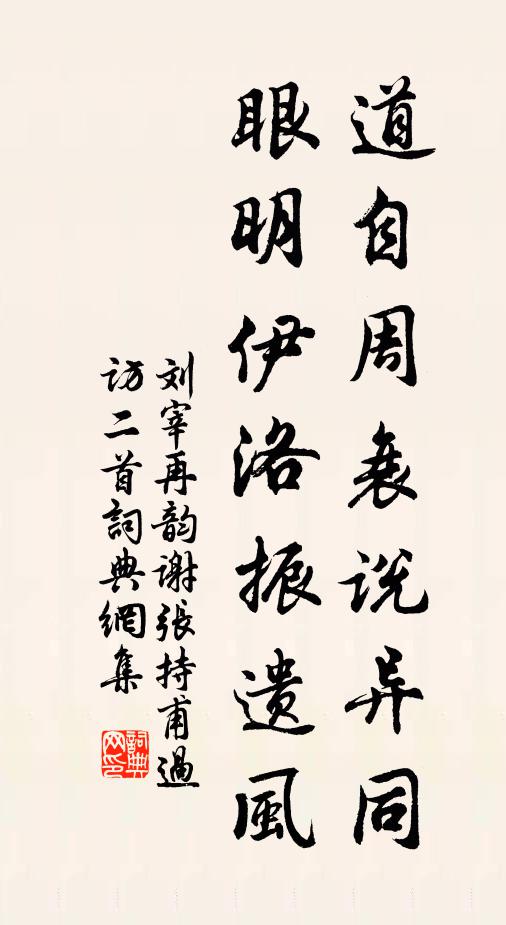 道自周衰说异同
眼明伊洛振遗風
刘宰再韵谢張持甫過
访二首詞典網集
詞典
网印